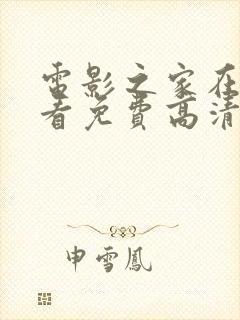 電影之家在
看免費高清
申雪鳳